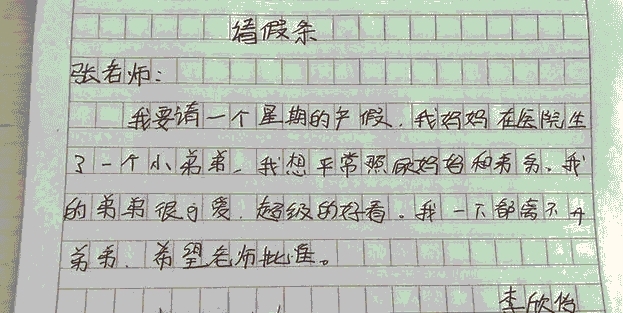 请假条
张老师：
我要请一个星期的产假，我妈妈在医院生
了一个小弟弟，我想平常照顾妈妈和弟弟、我
的弟弟很可爱，超级的好看。我一下都离不开
弟弟，希望老师批准。
李欣怡